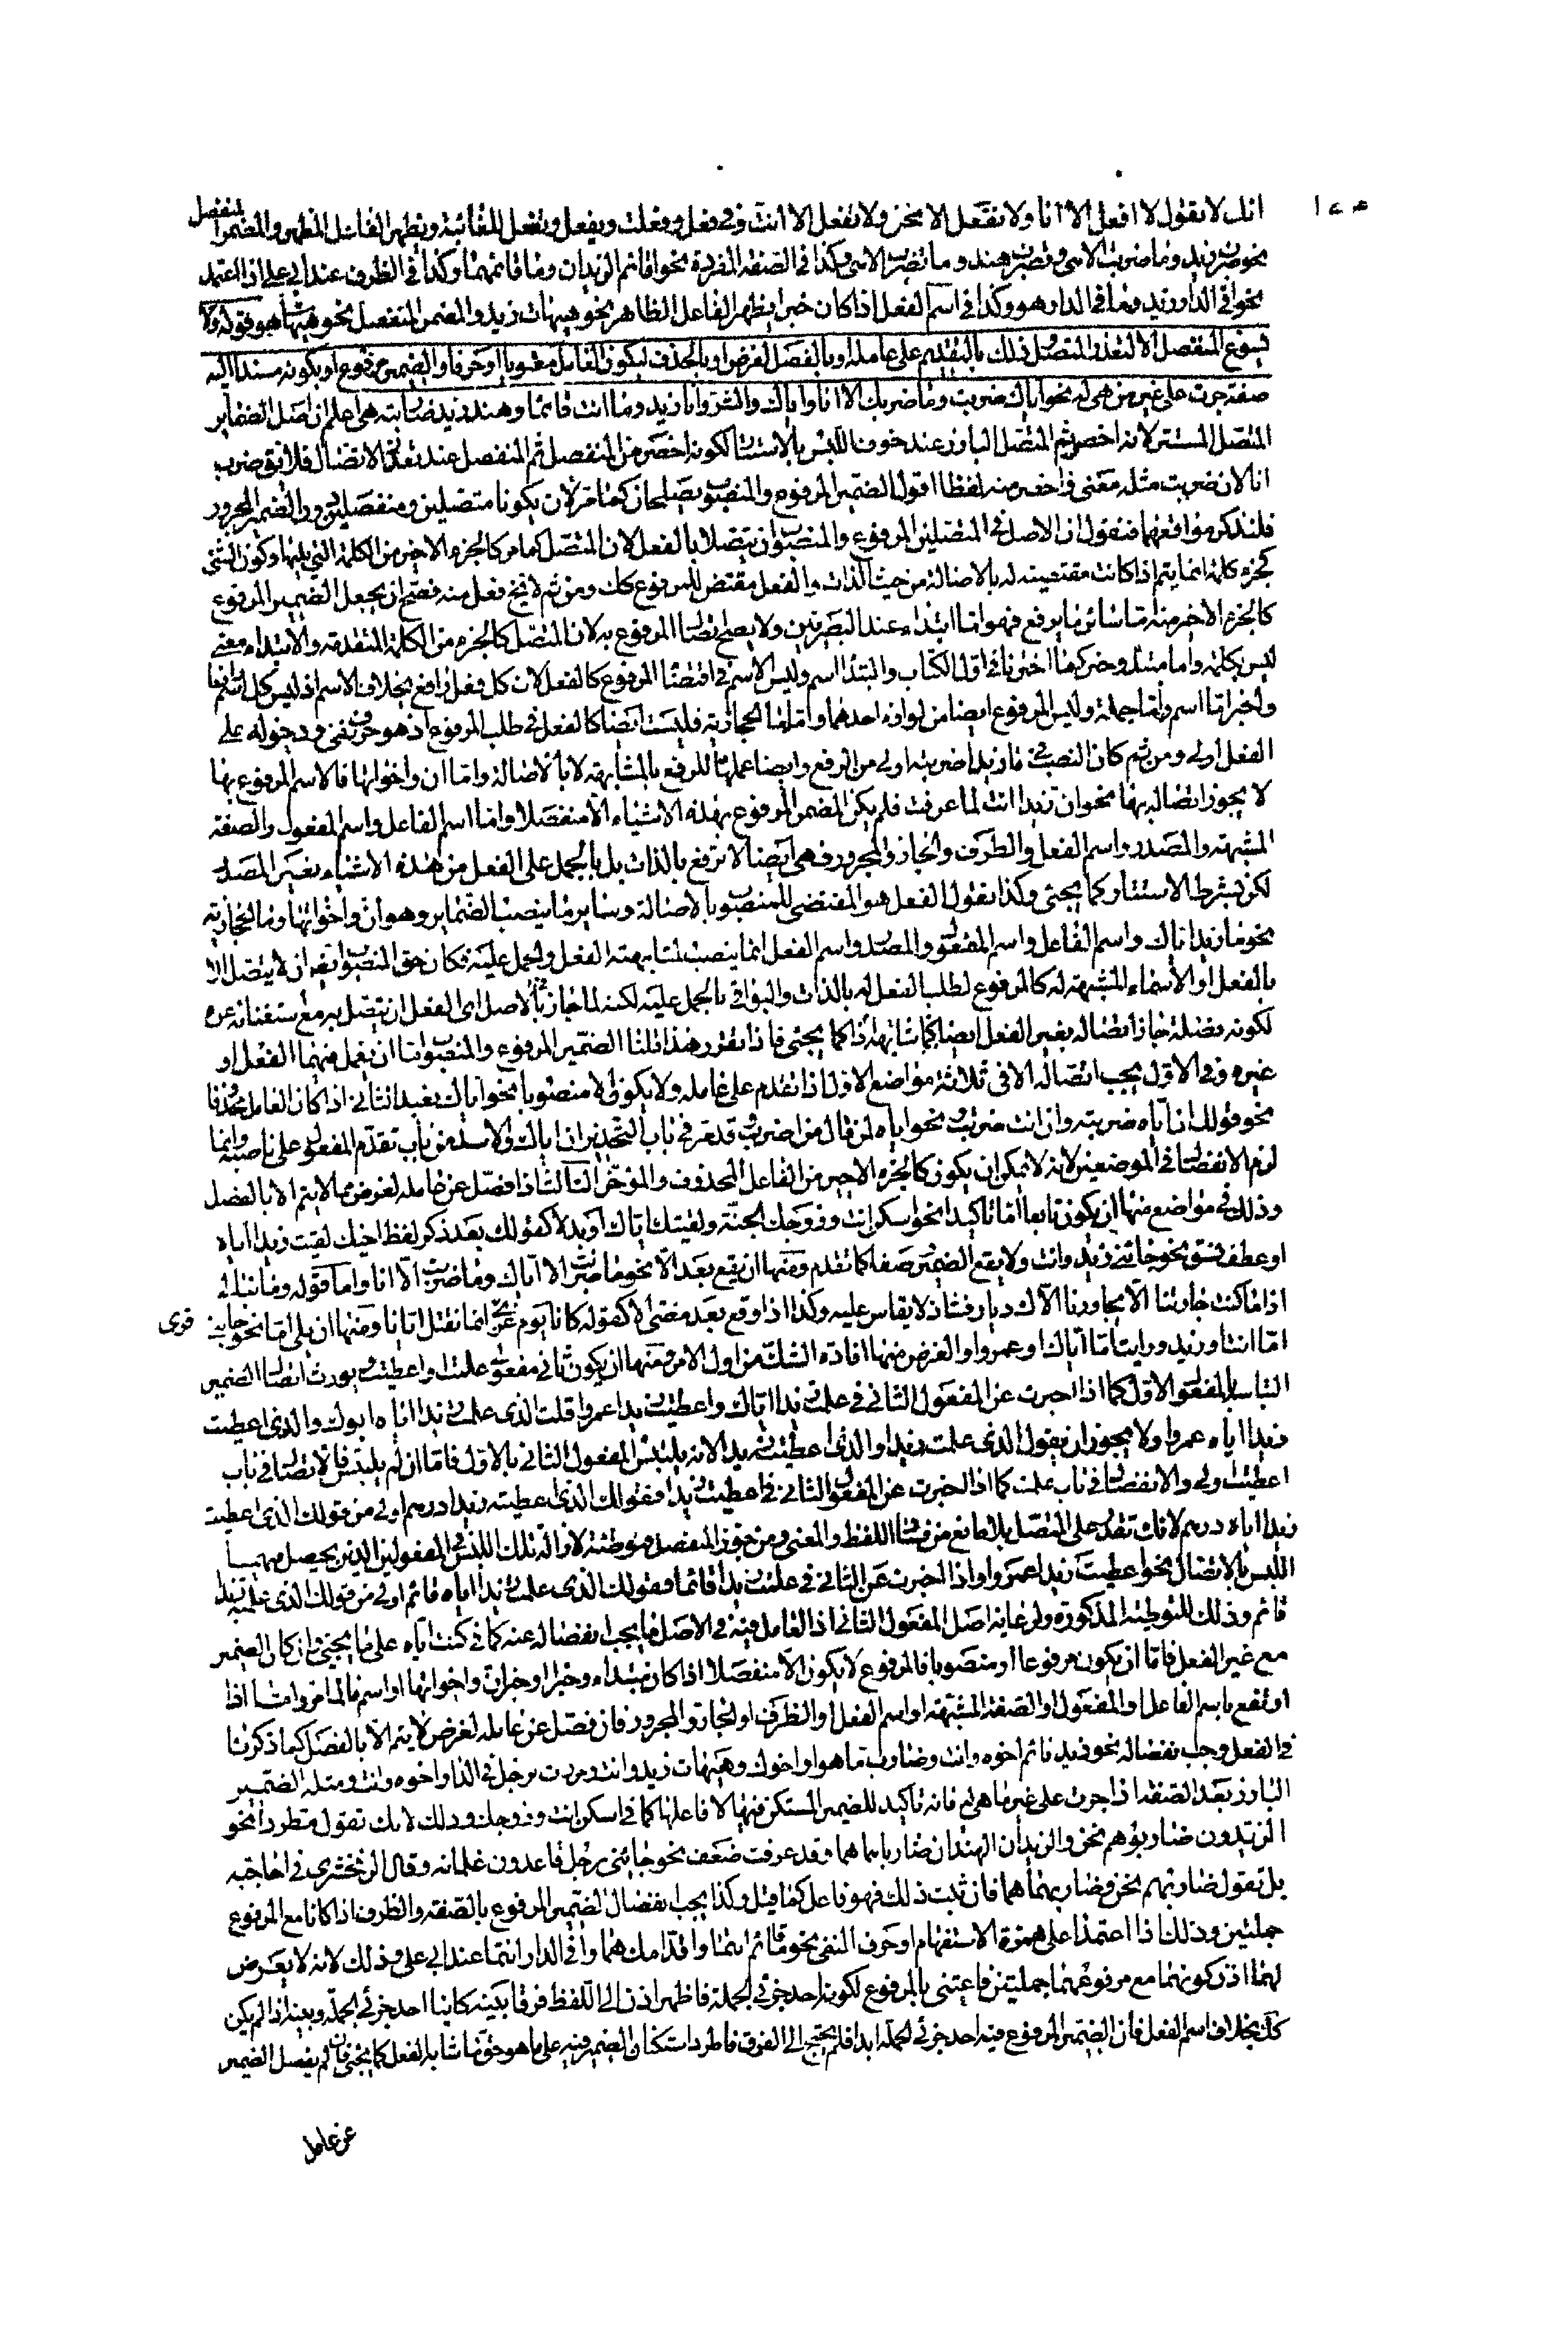 انك لا تقول لا افعل الا انا ولا نفعل الا نحن ولا تفعل الا انت وفى فعل وفعلت ويفعل وتفعل للغائبة ويظهر الفاعل المظهر والمضمر المنفصل
نحو ضرب زيد وما ضرب الا هو وتضرب هند وما تضرب الا هى وكذا فى الصفة المفردة نحو اقائم الزيدان وما قائم هما وكذا فى الظرف عند ابى على اذا اعتمد
نحو افى الدار زيد وما فى الدار هو وكذا فى اسم الفعل اذا كان خبرا يظهر الفاعل الظاهر نحو هيهات زيد والمضمر المنفصل نحو هيهات هو قوله ولا
يسوغ المنفصل الا لتعذر المتصل وذلك بالتقديم على عامله او بالفصل لغرض او بالحذف او بكون العامل معنويا او حرفا والضمير مرفوع او بكونه مسندا اليه
صفة جرت على غير من هى له نحو اياك ضربت وما ضربك الا انا واياك والشر وانا زيد وما انت قائما وهند زيد ضاربته هى اعلم ان اصل الضمائر
المتصل المستتر لانه اخصر ثم المتصل البارز عند خوف اللبس بالاستتار لكونه اخصر من المنفصل ثم المنفصل عند تعذر الاتصال فلا يق ضرب
انا لان ضربت مثله معنى واخصر منه لفظا اقول الضمير المرفوع والمنصوب يصلحان كما مر لان يكونا متصلين ومنفصلين دون الضمير المجرور
فلنذكر مواقعهما فنقول ان الاصل فى المتصلين المرفوع والمنصوب ان يتصلا بالفعل لان المتصل كما مر كالجزء الاخير من الكلمة التى يليها وكون الشئ
كجزء كلمة انما يتم اذا كانت مقتضية له بالاصالة من حيث الذات والفعل مقتض للمرفوع كك ومن ثم لا يخ فعل منه فصح ان يجعل الضمير المرفوع
كالجزء الاخير منه اما سائر ما يرفع فهو اما ابتداء عند البصريين ولا يصلح اتصال المرفوع به لان المتصل كالجزء من الكلمة المتقدمة والابتداء معنى
ليس بكلمة واما مبتدا وخبر كما اخترنا فى اول الكتاب والمبتدا اسم وليس الاسم فى اقتضاء المرفوع كالفعل لان كل فعل رافع بخلاف الاسم اذ ليس كل اسم رافعا
والخبر اما اسم واما جملة وليس المرفوع ايضا من لوازم احدهما واما ما الحجازية فليست ايضا كالفعل فى طلب المرفوع اذ هو حرف نفى ودخوله على
الفعل اولى ومن ثم كان النصب فى ما زيدا ضربته اولى من الرفع وايضا عملها للرفع بالمشابهة لا بالاصالة واما ان واخواتها فالاسم المرفوع بها
لا يجوز اتصاله بها نحو ان زيدا انت لما عرفت فلم يكن المضمر المرفوع بهذه الاشياء الا منفصلا واما اسم الفاعل واسم المفعول والصفة
المشبهة والمصدر واسم الفعل والظرف والجار والمجرور فهى ايضا لا ترفع بالذات بل بالحمل على الفعل من هذه الاشياء بغير المصدر
لكن بشرط الاستتار كما يجئ وكذا نقول الفعل هو المقتضى للمنصوب بالاصالة وسائر ما ينصب الضمائر وهو ان واخواتها وما الحجازية
نحو ما زيد اياك واسم الفاعل واسم المفعول والمصدر واسم الفعل انما ينصب لمشابهة الفعل والحمل عليه فكان حق المنصوب ايضا ان لا يتصل الا
بالفعل او الاسماء المشبهة له كالمرفوع لطلب الفعل له بالذات والبواقى بالحمل عليه لكنه لما جاز فى الاصل اى الفعل ان يتصل به مع استغنائه عنه
لكونه فضلة جاز اتصاله بغير الفعل ايضا مما شابهه كما يجئ فاذا تقرر هذا قلنا الضمير المرفوع والمنصوب اما ان يعمل فيهما الفعل او
غيره وفى الاول يجب اتصاله الا فى ثلاثة مواضع الاول اذا تقدم على عامله ولا يكون الا منصوبا نحو اياك نعبد الثانى اذا كان العامل محذوفا
نحو قولك ان اياه ضربته وان انت ضربت نحو اياه لمن قال من اضرب وقد مر فى باب التحذير ان اياك والاسد من باب تقدم المفعول على ناصبه وانما
لزم الانفصال فى الموضعين لانه لا يمكن ان يكون كالجزء الاخير من الفاعل المحذوف والمؤخر الثالث اذا فصل عن عامله لغرض لا يتم الا بالفصل
وذلك فى مواضع منها ان يكون تابعا اما تاكيدا نحو اسكن انت وزوجك الجنة ولقيتك اياك او بدلا كقولك بعد ذكر لفظ اخيك لقيت زيدا اياه
او عطف نسق نحو جائنى زيد وانت ولا يقع الضمير صفة كما تقدم ومنها ان يقع بعد الا نحو ما ضربت الا اياك وما ضرب الا انا واما قوله وما نبالى
اذا ما كنت جارتنا الا يجاورنا الاك ديار فشاذ لا يقاس عليه وكذا اذا وقع بعد معنى الا كقوله كانا يوم قرى انما نقتل ايانا ومنها ان يلى اما نحو جائنى
اما انت او زيد ورايت اما اياك او عمروا والغرض منها افادة الشك من اول الامر ومنها ان يكون ثانى مفعولى علمت او اعطيت يورث اتصال الضمير
التباسا بالمفعول الاول كما اذا اخبرت عن المفعول الثانى فى علمت زيدا اياك واعطيت زيدا عمروا قلت الذى علمت زيدا اياه ابوك والذى اعطيت
زيدا اياه عمرو ولا يجوز ان يقول الذى علمته زيدا والذى اعطيته زيدا لانه يلتبس المفعول الثانى بالاول فاما ان لم يلتبس فالاتصال فى باب
اعطيت اولى والانفصال فى باب علمت كما اذا اخبرت عن المفعول الثانى فى اعطيت زيدا فقولك الذى اعطيته زيدا درهم اولى من قولك الذى اعطيت
زيدا اياه درهم لانك تقدر على المتصل بلا مانع من فساد اللفظ والمعنى ومن جوز المنفصل فتوطئة لازالة ذلك اللبس فى المفعولين الذين يحصل فيهما
اللبس بالاتصال نحو اعطيت زيدا عمروا واذا اخبرت عن الثانى فى علمت زيدا قائما فقولك الذى علمت زيدا اياه قائم اولى من قولك الذى علمته زيدا
قائم وذلك للتوطئة المذكورة ولرعاية اصل المفعول الثانى اذ العامل فيه فى الاصل ما يجب انفصاله عنه كما فى كنت اياه على ما يجئ وان كان الضمير
مع غير الفعل فاما ان يكون مرفوعا او منصوبا فالمرفوع لا يكون الا منفصلا اذا كان مبتداء وخبرا او خبر ان واخواتها او اسم ما لما مر واما اذا
ارتفع باسم الفاعل او المفعول او الصفة المشبهة او اسم الفعل او الظرف او الجار والمجرور فان فصل عن عامله لغرض لا يتم الا بالفصل كما ذكرنا
فى الفعل وجب انفصاله نحو زيد قائم اخوه وانت وضارب ما هو او اخوك وهيهات زيد وانت ومررت برجل فى الدار اخوه وانت ومثله الضمير
البارز بعد الصفة اذا جرت على غير ما هى له فانه تاكيد للضمير المستكن فيها لا فاعلها كما فى اسكن انت وزوجك وذلك لانك تقول مطردا نحو
الزيدون ضاربوهم نحن والزيدان الهندان ضارباهما هما وقد عرفت ضعف نحو جائنى رجل قاعدون غلمانه وقال الزمخشرى فى احاجيه
بل تقول ضاربهم نحن وضاربهما هما فان ثبت ذلك فهو فاعل كما قيل وكذا يجب انفصال الضمير المرفوع بالصفة والظرف اذا كانا مع المرفوع
جملتين وذلك اذا اعتمدا على همزة الاستفهام او حرف النفى نحو ما قائم انتما واقدامك هما وافى الدار انتما عند ابى على وذلك لانه لا يعرض
لهما اذن كونهما مع مرفوعهما جملتين فاعتنى بالمرفوع لكونه احد جزئى الجملة فاظهر اذن الى اللفظ فرقا بينه كائنا احد جزئى الجملة وبينه اذا لم يكن
كك بخلاف اسم الفعل فان الضمير المرفوع فيه احد جزئى الجملة ابدا فلم يحتج الى الفرق فاطرد استكنان الضمير فيه على ما هو حق ما شابه الفعل كما يجئ فان لم يفصل الضمير
عن عامل